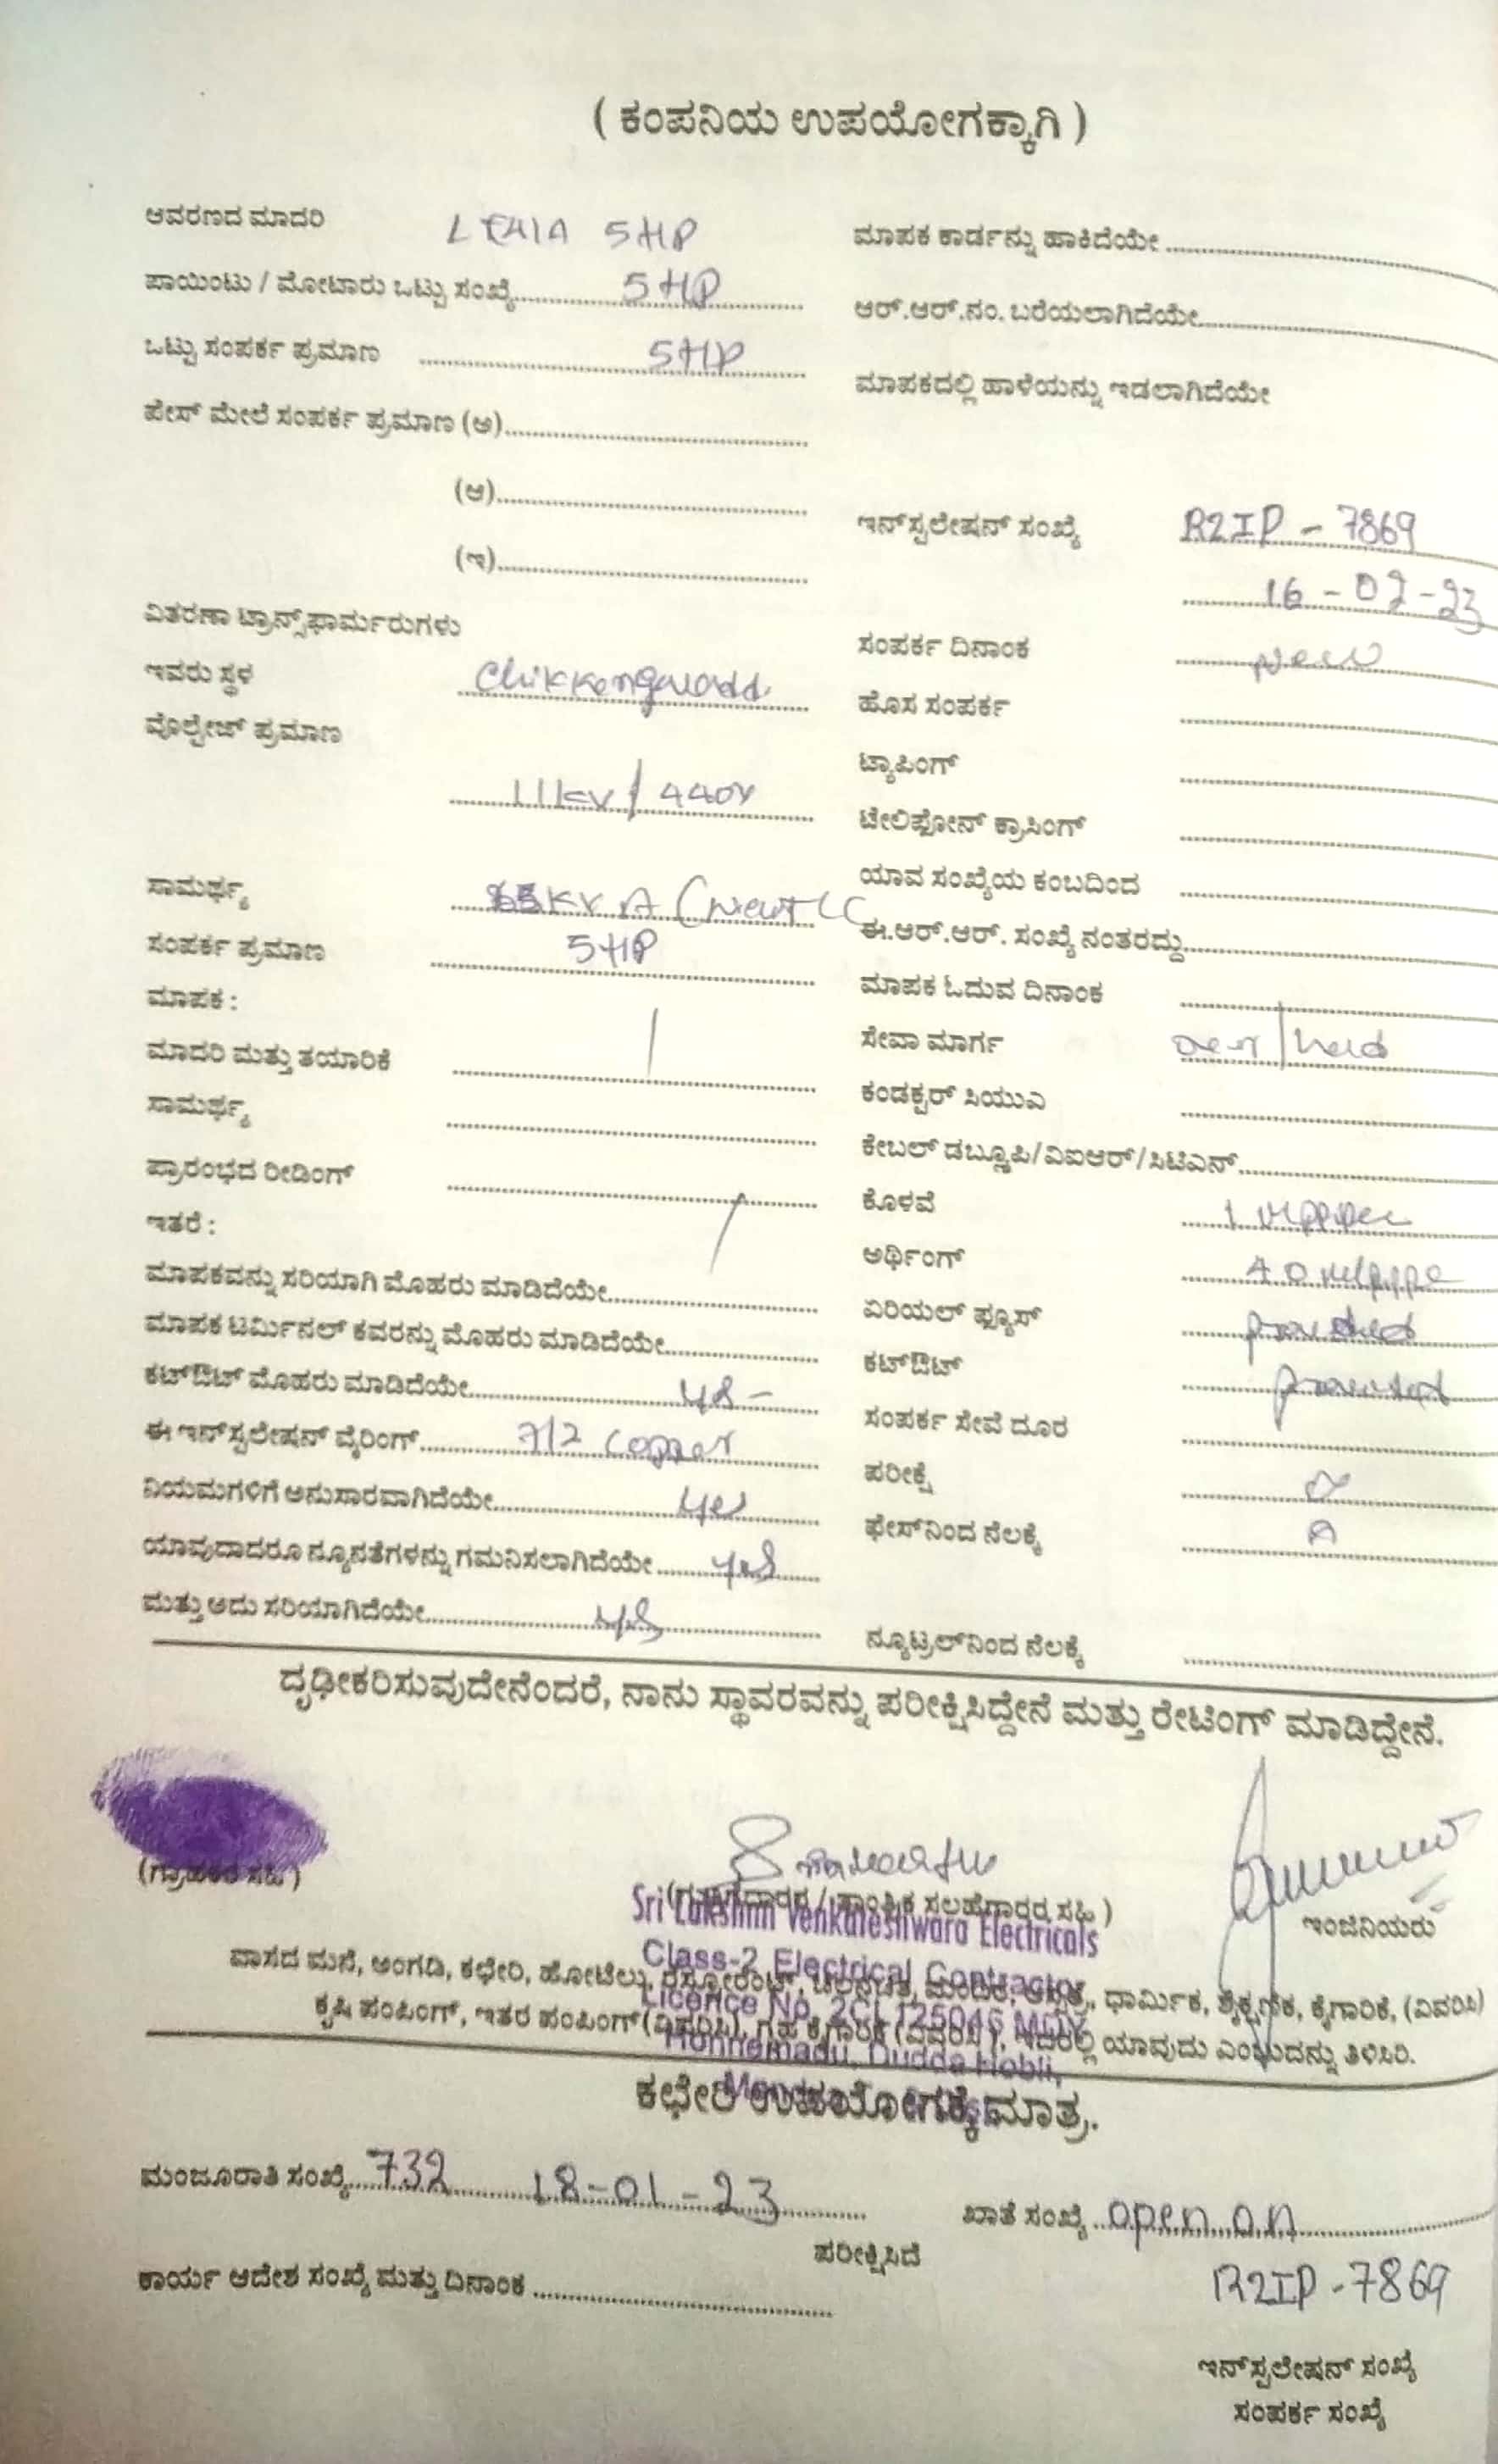 ( ಕಂಪನಿಯ ಉಪಯೋಗಕ್ಕಾಗಿ )
ಆವರಣದ ಮಾದರಿ 5HP
ಪಾಯಿಂಟು / ಮೋಟಾರು ಒಟ್ಟು ಸಂಖ್ಯೆ 5HP
ಒಟ್ಟು ಸಂಪರ್ಕ ಪ್ರಮಾಣ 5HP
ಪೇಸ್ ಮೇಲೆ ಸಂಪರ್ಕ ಪ್ರಮಾಣ (ಅ)
(ಆ)
(ಇ)
ವಿತರಣಾ ಟ್ರಾನ್ಸ್‌ಫಾರ್ಮರುಗಳು
ಇವರು ಸ್ಥಳ
ವೊಲ್ಟೇಜ್ ಪ್ರಮಾಣ
11KV / 440V
ಸಾಮರ್ಥ್ಯ KVA
ಸಂಪರ್ಕ ಪ್ರಮಾಣ 5HP
ಮಾಪಕ :
ಮಾದರಿ ಮತ್ತು ತಯಾರಿಕೆ
ಸಾಮರ್ಥ್ಯ
ಪ್ರಾರಂಭದ ರೀಡಿಂಗ್
ಇತರೆ :
ಮಾಪಕವನ್ನು ಸರಿಯಾಗಿ ಮೊಹರು ಮಾಡಿದೆಯೇ
ಮಾಪಕ ಟರ್ಮಿನಲ್ ಕವರನ್ನು ಮೊಹರು ಮಾಡಿದೆಯೇ
ಕಟ್‌ಔಟ್ ಮೊಹರು ಮಾಡಿದೆಯೇ yes -
ಈ ಇನ್‌ಸ್ಟಲೇಷನ್ ವೈರಿಂಗ್ 7/2 copper
ನಿಯಮಗಳಿಗೆ ಅನುಸಾರವಾಗಿದೆಯೇ yes
ಯಾವುದಾದರೂ ನ್ಯೂನತೆಗಳನ್ನು ಗಮನಿಸಲಾಗಿದೆಯೇ yes
ಮತ್ತು ಅದು ಸರಿಯಾಗಿದೆಯೇ yes
ಮಾಪಕ ಕಾರ್ಡನ್ನು ಹಾಕಿದೆಯೇ
ಆರ್.ಆರ್.ನಂ. ಬರೆಯಲಾಗಿದೆಯೇ
ಮಾಪಕದಲ್ಲಿ ಹಾಳೆಯನ್ನು ಇಡಲಾಗಿದೆಯೇ
ಇನ್‌ಸ್ಟಲೇಷನ್ ಸಂಖ್ಯೆ R2IP - 7869
16 - 02 - 23
ಸಂಪರ್ಕ ದಿನಾಂಕ New
ಹೊಸ ಸಂಪರ್ಕ
ಟ್ಯಾಪಿಂಗ್
ಟೇಲಿಫೋನ್ ಕ್ರಾಸಿಂಗ್
ಯಾವ ಸಂಖ್ಯೆಯ ಕಂಬದಿಂದ
ಈ.ಆರ್.ಆರ್. ಸಂಖ್ಯೆ ನಂತರದ್ದು
ಮಾಪಕ ಓದುವ ದಿನಾಂಕ
ಸೇವಾ ಮಾರ್ಗ over / head
ಕಂಡಕ್ಟರ್ ಸಿಯುಎ
ಕೇಬಲ್ ಡಬ್ಲೂಪಿ/ವಿಐಆರ್/ಸಿಟಿಎನ್
ಕೊಳವೆ
ಅರ್ಥಿಂಗ್
ಏರಿಯಲ್ ಫ್ಯೂಸ್ provided
ಕಟ್‌ಔಟ್ provided
ಸಂಪರ್ಕ ಸೇವೆ ದೂರ
ಪರೀಕ್ಷೆ
ಫೇಸ್‌ನಿಂದ ನೆಲಕ್ಕೆ
ನ್ಯೂಟ್ರಲ್‌ನಿಂದ ನೆಲಕ್ಕೆ
ದೃಢೀಕರಿಸುವುದೇನೆಂದರೆ, ನಾನು ಸ್ಥಾವರವನ್ನು ಪರೀಕ್ಷಿಸಿದ್ದೇನೆ ಮತ್ತು ರೇಟಿಂಗ್ ಮಾಡಿದ್ದೇನೆ.
(ಗ್ರಾಹಕರ ಸಹಿ )
(ಗುತ್ತಿಗೆದಾರರ / ತಾಂತ್ರಿಕ ಸಲಹೆಗಾರರ ಸಹಿ )
ಇಂಜಿನಿಯರು
Sri Lakshmi Venkateshwara Electricals
Class-2 Electrical Contractor
Licence No. 2CL125046 MDY
Honnemadu, Dudda Hobli,
ವಾಸದ ಮನೆ, ಅಂಗಡಿ, ಕಛೇರಿ, ಹೋಟೆಲು, ರೆಸ್ಟೋರೆಂಟ್, ಚಲನಚಿತ್ರ ಮಂದಿರ, ಆಸ್ಪತ್ರೆ, ಧಾರ್ಮಿಕ, ಶೈಕ್ಷಣಿಕ, ಕೈಗಾರಿಕೆ, (ವಿವರಿಸಿ)
ಕೃಷಿ ಪಂಪಿಂಗ್, ಇತರ ಪಂಪಿಂಗ್ (ವಿವರಿಸಿ), ಗೃಹ ಕೈಗಾರಿಕೆ (ವಿವರಿಸಿ ), ಇದರಲ್ಲಿ ಯಾವುದು ಎಂಬುದನ್ನು ತಿಳಿಸಿರಿ.
ಕಛೇರಿ ಉಪಯೋಗಕ್ಕೆ ಮಾತ್ರ.
ಮಂಜೂರಾತಿ ಸಂಖ್ಯೆ 732 18-01-23
ಖಾತೆ ಸಂಖ್ಯೆ open on
ಪರೀಕ್ಷಿಸಿದೆ
ಕಾರ್ಯ ಆದೇಶ ಸಂಖ್ಯೆ ಮತ್ತು ದಿನಾಂಕ
R2IP-7869
ಇನ್‌ಸ್ಟಲೇಷನ್ ಸಂಖ್ಯೆ
ಸಂಪರ್ಕ ಸಂಖ್ಯೆ